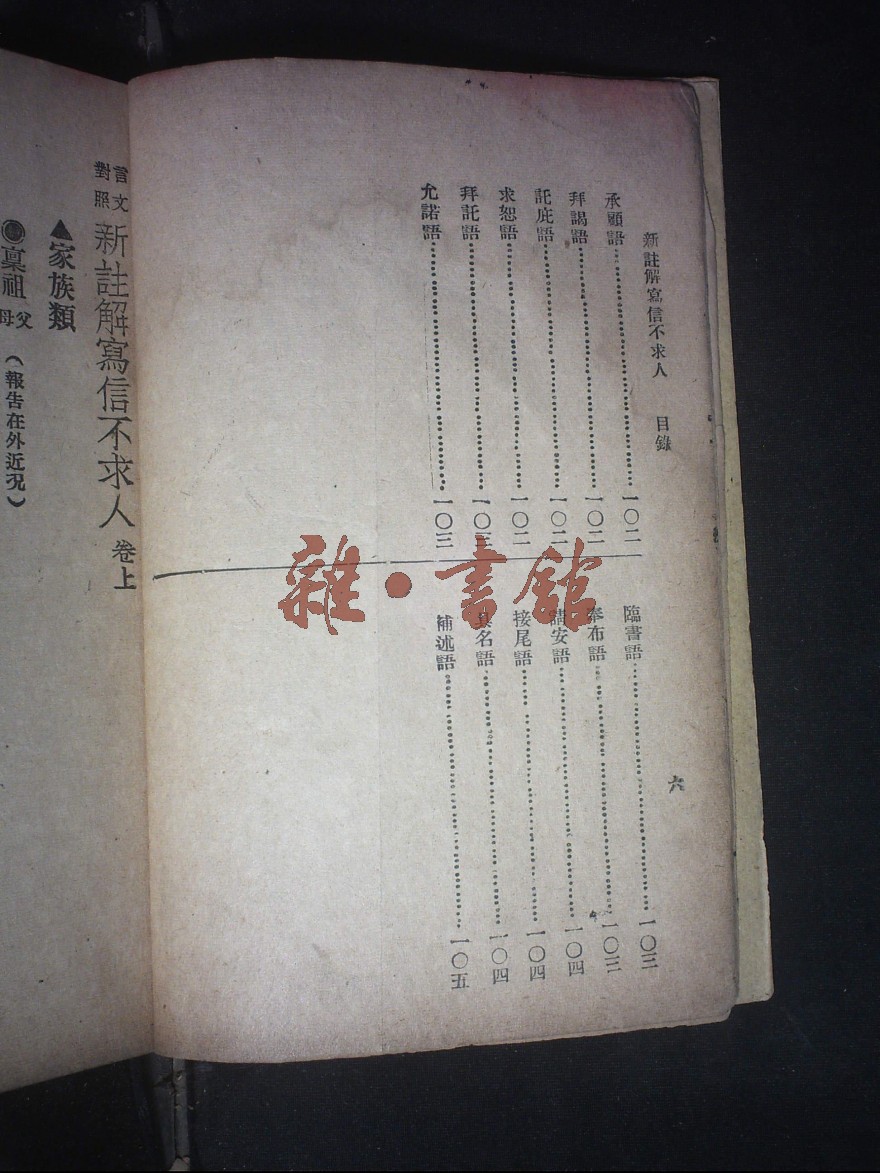 新註解寫信不求人 目錄 六
承顧語……一〇二
拜謁語……一〇二
託庇語……一〇二
求恕語……一〇二
拜託語……一〇三
允諾語……一〇三
臨書語……一〇三
奉布語……一〇三
請安語……一〇四
接尾語……一〇四
具名語……一〇四
補述語……一〇五
言文對照 新註解寫信不求人 卷上
▲家族類
●稟祖父母（報告在外近況）
雜·書館